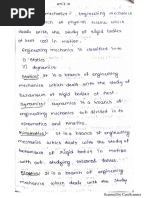 UNIT-II
mechanics: Engineering mechanics
branch of physical science which
deals with the study of rigid bodies
at rest and in motion.
Engineering mechanics is classified into
1) Statics
2) Dynamics.
Statics: It is a branch of engineering
mechanics which deals with the study
of rigid bodies at rest.
Dynamics: Dynamics is a branch of
engineering mechanics
kinematics and kinetics.
Kinematics: It is a branch of engineering
mechanics which deals with the study of
of rigid bodies in motion
with out studying external forces.
Kinetics: It is a branch of engineering
mechanics which deals with the study
Scanned by CamScanner